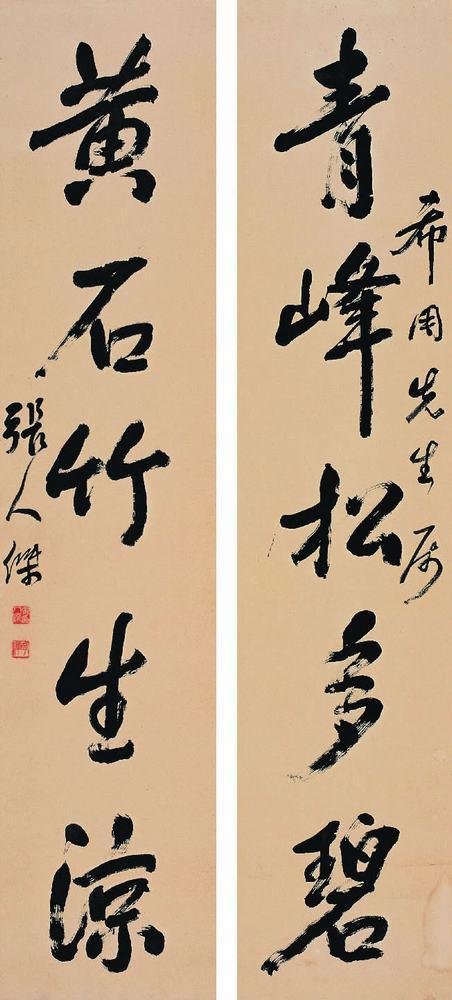 希周先生属
青峰松多碧
黄石竹生凉
張人傑